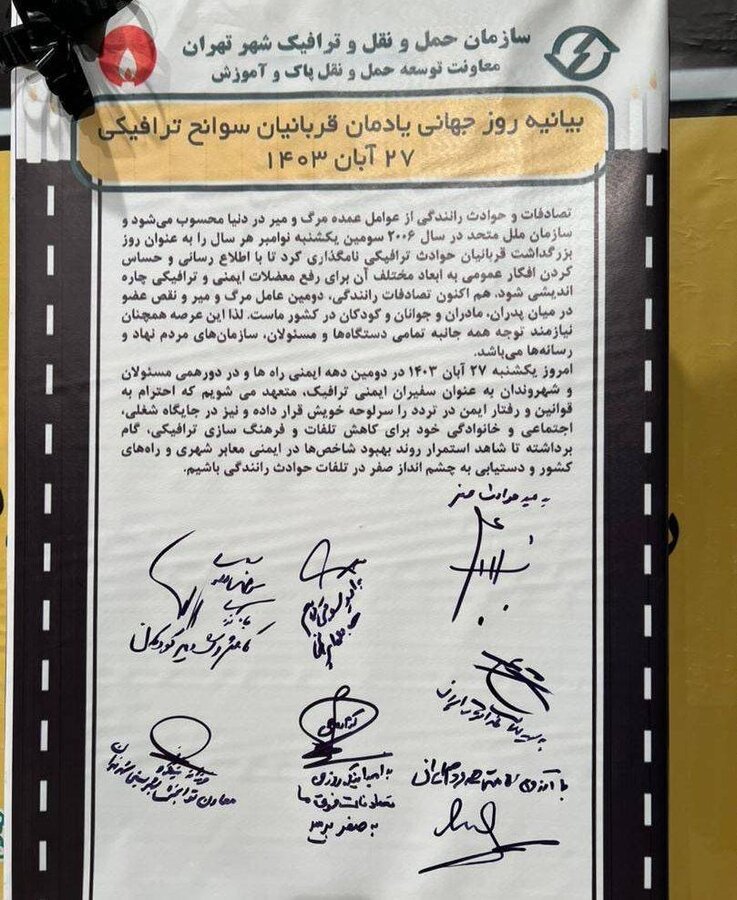 سازمان حمل و نقل و ترافیک شهر تهران
معاونت توسعه حمل و نقل پاک و آموزش
بیانیه روز جهانی یادمان قربانیان سوانح ترافیکی
۲۷ آبان ۱۴۰۳
تصادفات و حوادث رانندگی از عوامل عمده مرگ و میر در دنیا محسوب می‌شود و
سازمان ملل متحد در سال ۲۰۰۶ سومین یکشنبه نوامبر هر سال را به عنوان روز
بزرگداشت قربانیان حوادث ترافیکی نامگذاری کرد تا با اطلاع رسانی و حساس
کردن افکار عمومی به ابعاد مختلف آن برای رفع معضلات ایمنی و ترافیکی چاره
اندیشی شود. هم اکنون تصادفات رانندگی، دومین عامل مرگ و میر و نقص عضو
در میان پدران، مادران و جوانان و کودکان در کشور ماست. لذا این عرصه همچنان
نیازمند توجه همه جانبه تمامی دستگاه‌ها و مسئولان، سازمان‌های مردم نهاد و
رسانه‌ها می‌باشد.
امروز یکشنبه ۲۷ آبان ۱۴۰۳ در دومین دهه ایمنی راه ها و در دورهمی مسئولان
و شهروندان به عنوان سفیران ایمنی ترافیک، متعهد می شویم که احترام به
قوانین و رفتار ایمن در تردد را سرلوحه خویش قرار داده و نیز در جایگاه شغلی،
اجتماعی و خانوادگی خود برای کاهش تلفات و فرهنگ سازی ترافیکی، گام
برداشته تا شاهد استمرار روند بهبود شاخص‌ها در ایمنی معابر شهری و راه‌های
کشور و دستیابی به چشم انداز صفر در تلفات حوادث رانندگی باشیم.
به امید حوادث صفر
کاهش مرگ و میر کودکان
به امید اینکه روزی
تصادفات فوتی ما
به صفر برسد